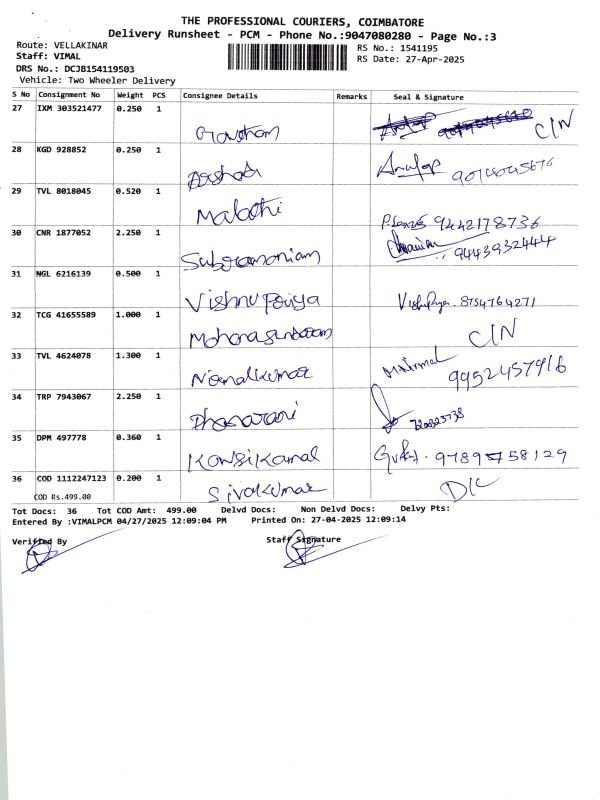 THE PROFESSIONAL COURIERS, COIMBATORE
Delivery Runsheet - PCM - Phone No.:9047080280 - Page No.:3
Route: VELLAKINAR
Staff: VIMAL
DRS No.: DCJB154119503
Vehicle: Two Wheeler Delivery
RS No.: 1541195
RS Date: 27-Apr-2025
S No Consignment No Weight PCS Consignee Details Remarks Seal & Signature
27 IXM 303521477 0.250 1 Gowtham C/N
28 KGD 928852 0.250 1
29 TVL 8018045 0.520 1 Malathi 9442178736
30 CNR 1877052 2.250 1 Subramaniam 9443932444
31 NGL 6216139 0.500 1 Vishnu Priya Vishnu Priya. 8754764271
32 TCG 41655589 1.000 1 C/N
33 TVL 4624078 1.300 1 Nirmalkumar 9952457916
34 TRP 7943067 2.250 1 Dhanarani
35 DPM 497778 0.360 1 9789758129
36 COD 1112247123 0.200 1 Sivakumar D/C
COD Rs.499.00
Tot Docs: 36 Tot COD Amt: 499.00 Delvd Docs: Non Delvd Docs: Delvy Pts:
Entered By :VIMALPCM 04/27/2025 12:09:04 PM Printed On: 27-04-2025 12:09:14
Verified By Staff Signature